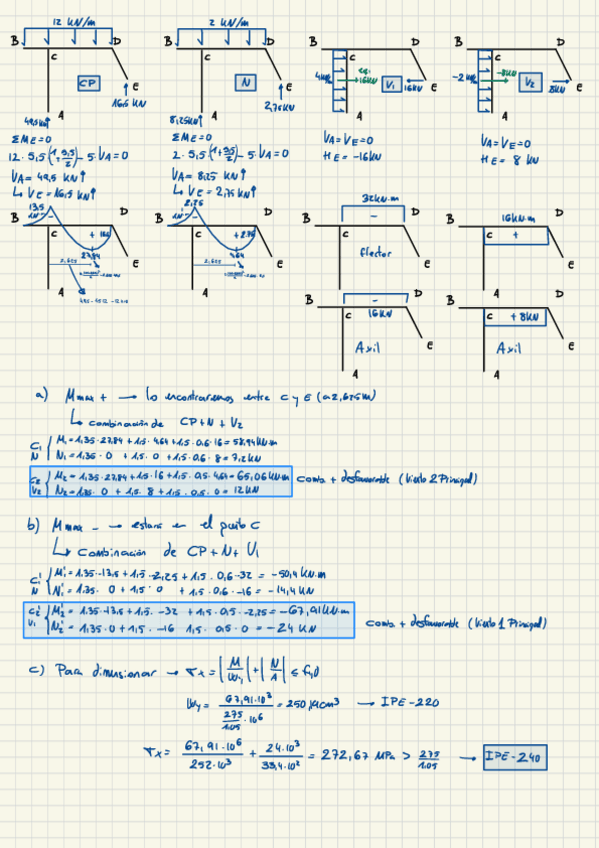 12 KN/m
B D
C
CP
E
16,5 KN
A
49,5KN
ΣME=0
12·5,5(1+5,5/2)-5·VA=0
VA=49,5 KN↑
↳ VE=16,5 KN↑
2 KN/m
B D
C
N
E
2,75KN
A
8,25KN
ΣME=0
2·5,5(1+5,5/2)-5·VA=0
VA=8,25 KN↑
↳ VE=2,75 KN↑
B D
C
16KN
V1
16KN
E
A
VA=VE=0
HE=-16KN
B D
C
-2KN
-8KN
V2
8KN
E
A
VA=VE=0
HE= 8 KN
13,5
B D
C
+
27,84
2,625
E
A
2,25
B D
C
+
4,64
2,625
E
A
32KN·m
-
B D
C
flector
E
A
16KN·m
B D
C
+
E
A
B D
-
C 16KN
E
Axil
A
B D
C + 8KN
E
Axil
A
a) Mmax + → lo encontraremos entre C y E (a 2,625m)
↳ combinación de CP+N+V2
C1 N { M1=1,35·27,84+1,5·4,64+1,5·0,6·16=58,94KN·m
N1=1,35·0+1,5·0+1,5·0,6·8=7,2KN
C2 V2 { M2=1,35·27,84+1,5·16+1,5·0,5·4,64=65,06KN·m
N2=1,35·0+1,5·8+1,5·0,5·0=12KN
comb. + desfavorable (Viento 2 Principal)
b) Mmax - → estará en el punto C
↳ Combinación de CP+N+V1
C1' N { M1'=1,35·-13,5+1,5·-2,25+1,5·0,6·-32=-50,4 KN·m
N1'=1,35·0+1,5·0+1,5·0,6·-16=-14,4KN
C2' V1 { M2'=1,35·-13,5+1,5·-32+1,5·0,5·-2,25=-67,91KN·m
N2'=1,35·0+1,5·-16 1,5·0,5·0=-24 KN
comb. + desfavorable (Viento 1 Principal)
c) Para dimensionar → σx=|M/Wy|+|N/A|≤fyd
Wy=67,91·10³/(275/1.05·10⁶)=250,19cm³ → IPE-220
σx=67,91·10⁶/252·10³+24·10³/33,4·10²=272,67 MPa > 275/1.05 → IPE-240